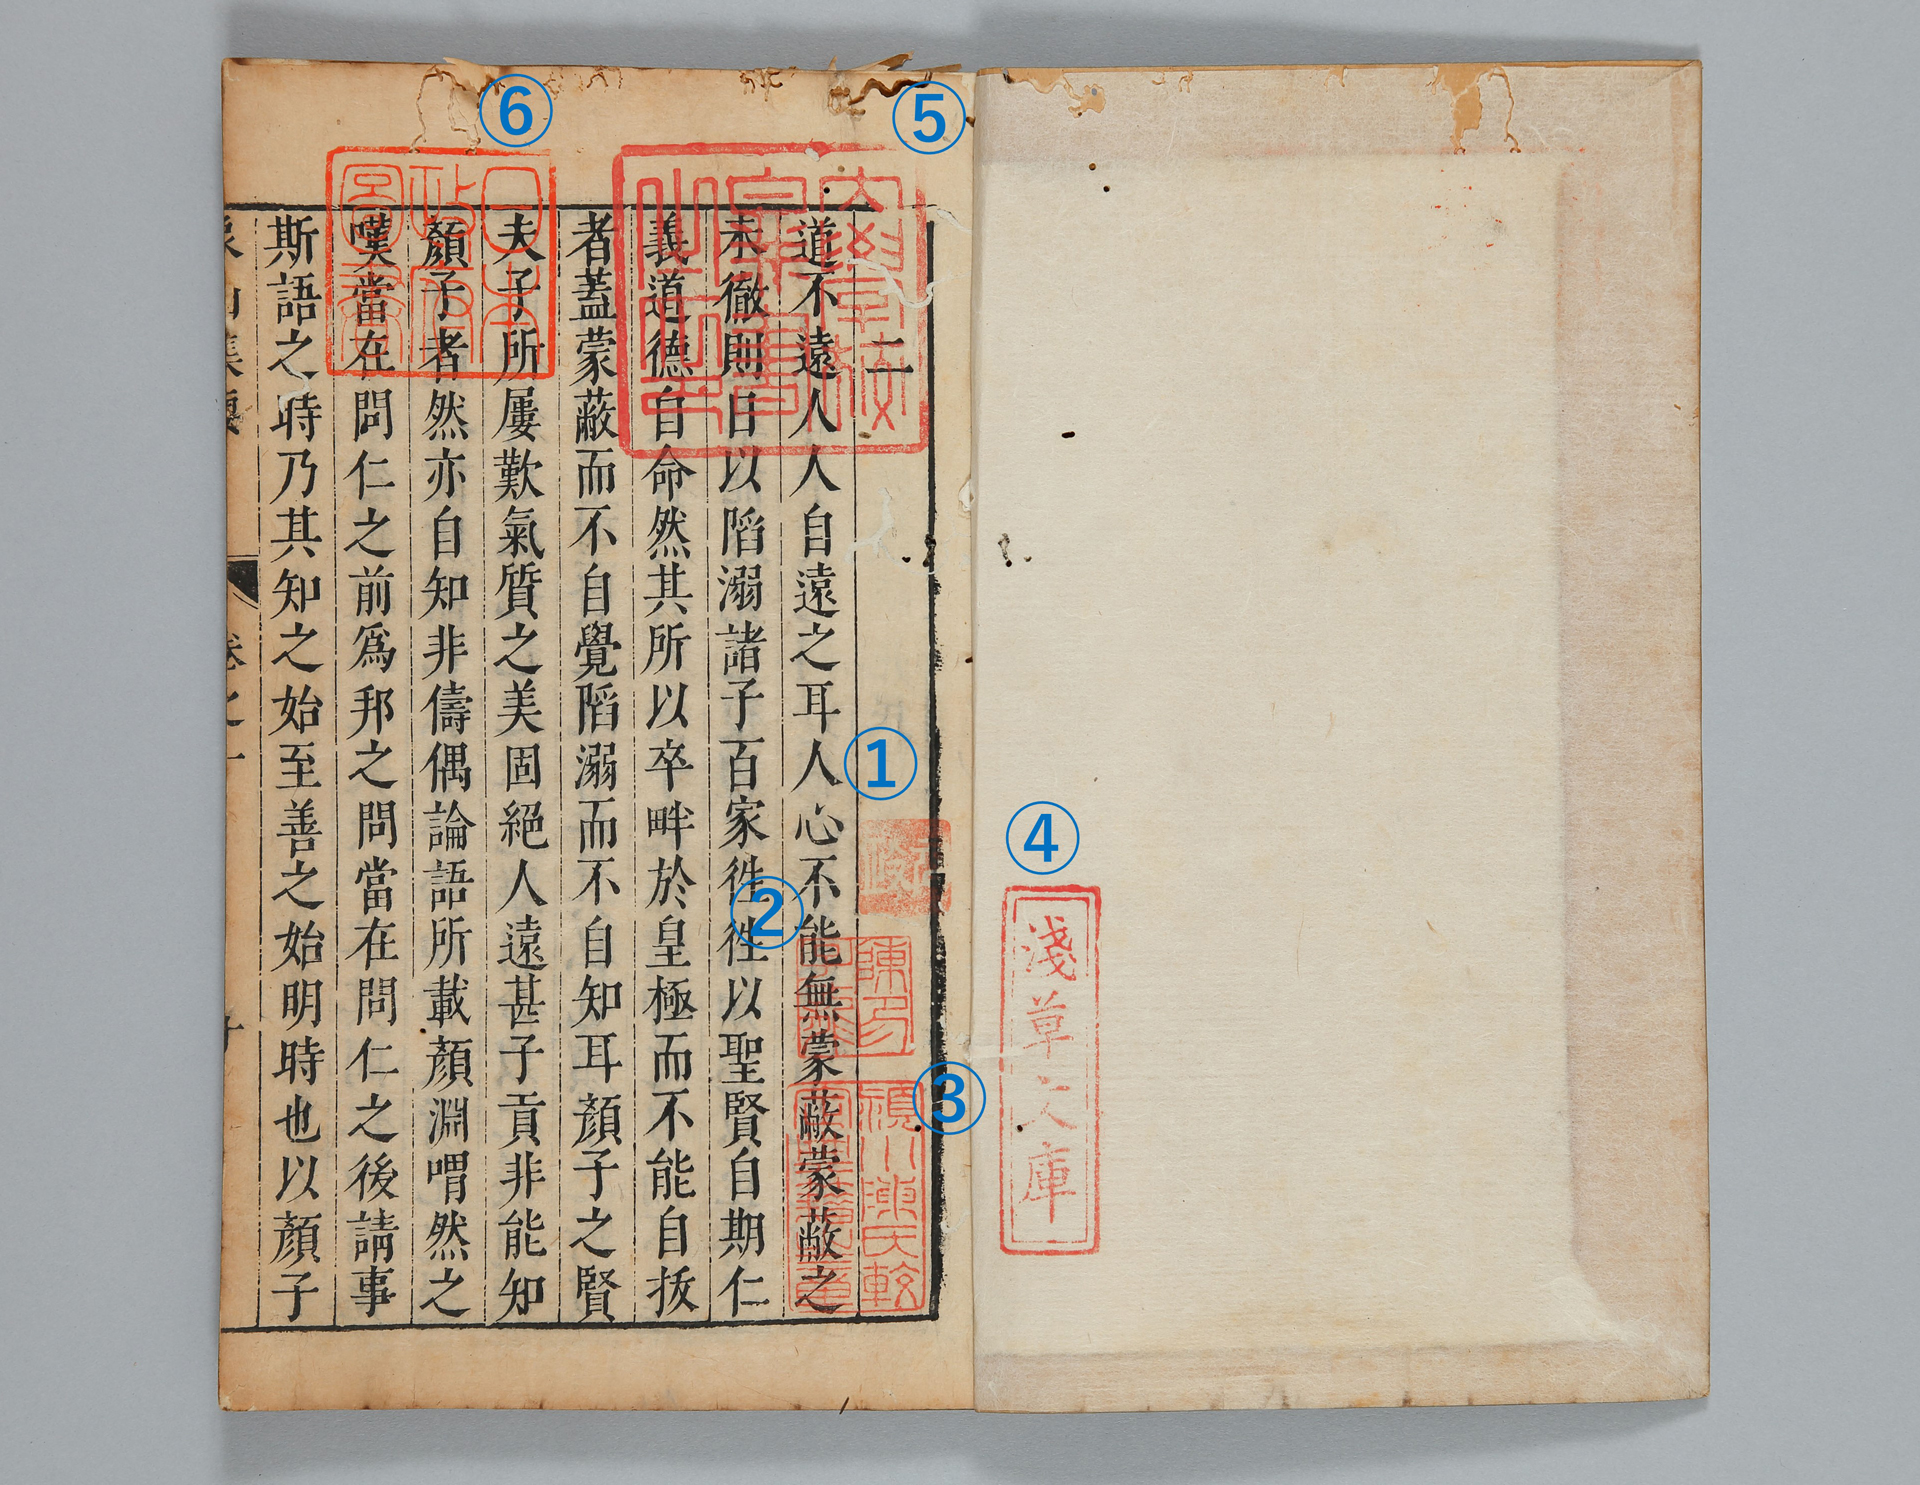 ④
淺草文庫
⑤
⑥
①
②
③
二
道不遠人人自遠之耳人心不能無蒙蔽蒙蔽之
未徹則日以陷溺諸子百家徃徃以聖賢自期仁
義道德自命然其所以卒畔於皇極而不能自拔
者蓋蒙蔽而不自覺陷溺而不自知耳顏子之賢
夫子所屢歎氣質之美固絕人遠甚子貢非能知
顏子者然亦自知非儔偶論語所載顏淵喟然之
嘆當在問仁之前爲邦之問當在問仁之後請事
斯語之時乃其知之始至善之始明時也以顏子
日本政府圖書